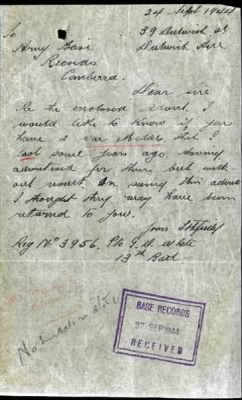 24 Sept 1944
To 39 Dulwich St
Army Base Dulwich Hill
Records
Canberra.
Dear sire
Re the enclosed advert. I
would like to know if you
have 2 war Medals that I
lost some years ago. Having
advertised for them but with
out result. On seeing this advert
I thought they may have been
returned to you.
Yours
Reg No 3956. Pte G. W. White
13th Batt
BASE RECORDS
27 SEP 1944
RECEIVED